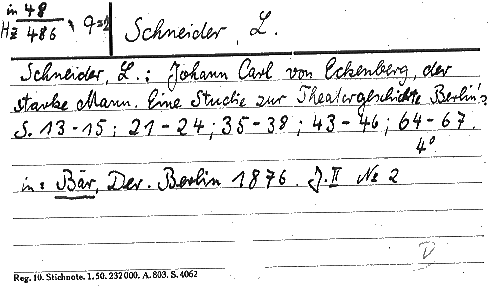 in 48
Hz 486, q=2
Schneider, L.
Schneider, L.: Johann Carl von Eckenberg, der
starke Mann. Eine Studie zur Theatergeschichte Berlin's
S. 13-15; 21-24; 35-38; 43-46; 64-67.
4°
in: Bär, Der. Berlin 1876. J. II No 2
D
Reg. 10. Stichnote. 1. 50. 232 000. A. 803. S. 4062